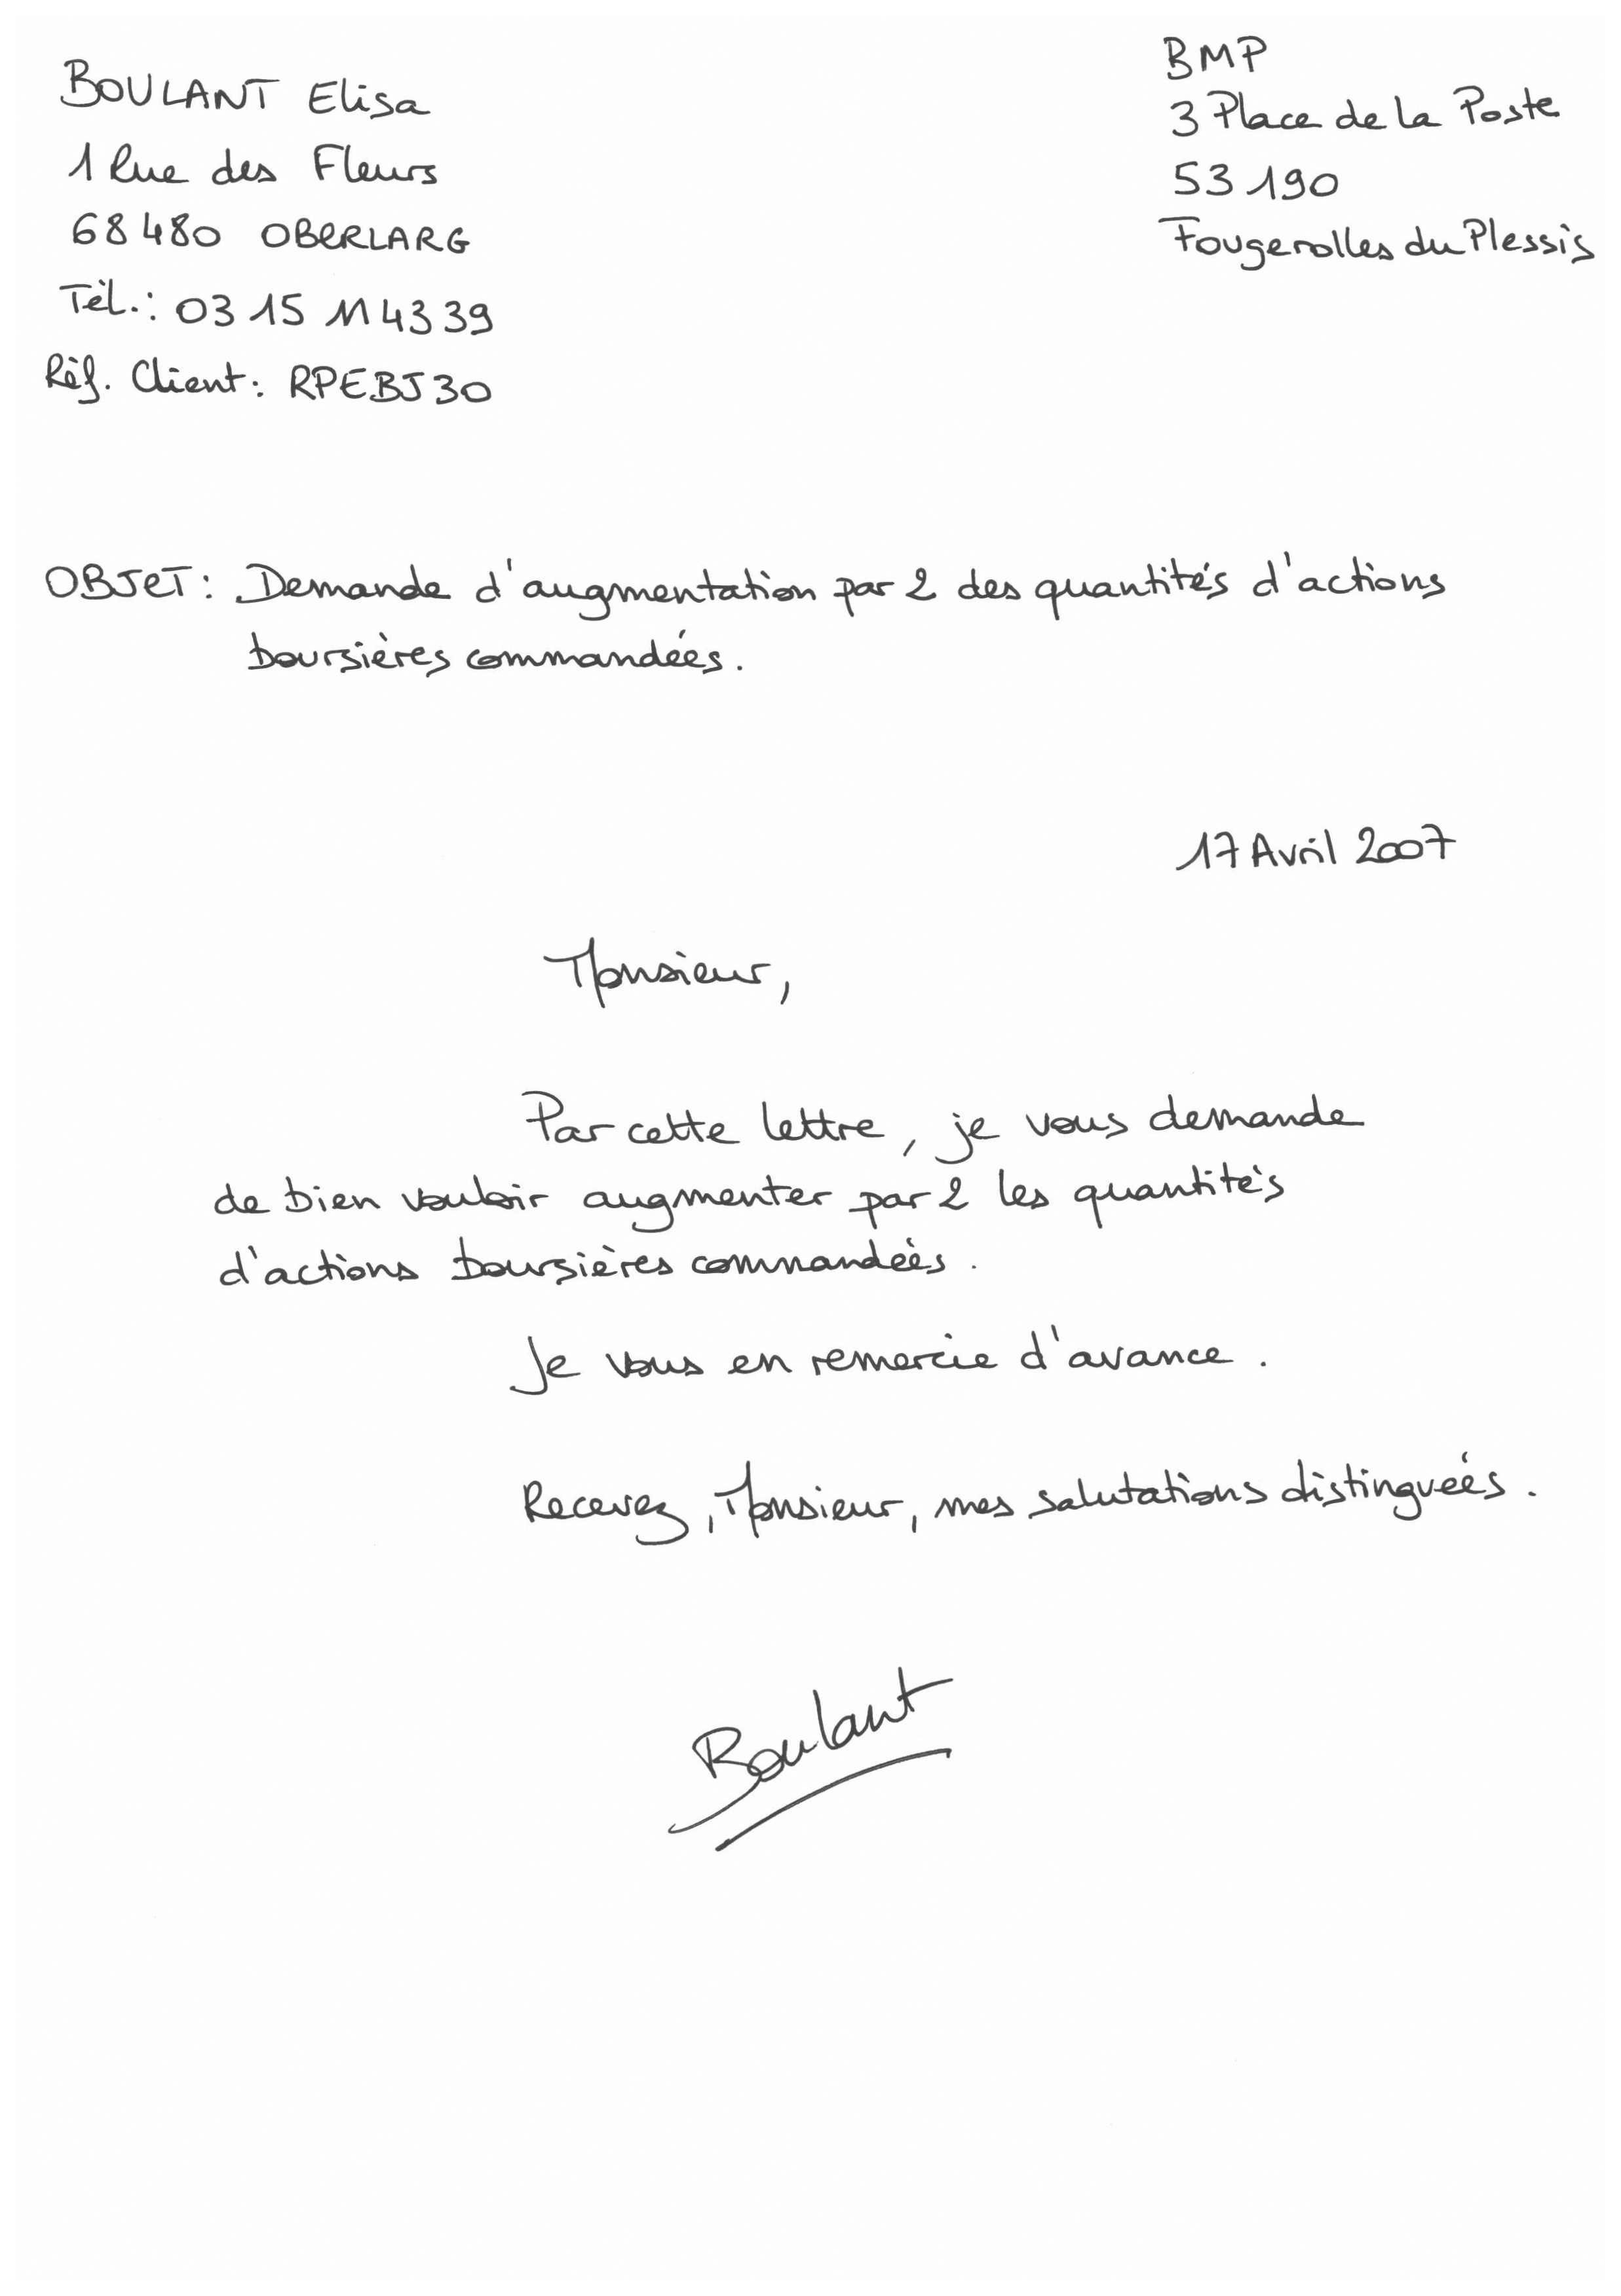 BOULANT Elisa
1 Rue des Fleurs
68480 OBERLARG
Tél.: 03 15 11 43 39
Réf. Client: RPEBJ30
BMP
3 Place de la Poste
53190
Fougerolles du Plessis
OBJET: Demande d'augmentation par 2 des quantités d'actions
boursières commandées.
17 Avril 2007
Monsieur,
Par cette lettre, je vous demande
de bien vouloir augmenter par 2 les quantités
d'actions boursières commandées.
Je vous en remercie d'avance.
Recevez, Monsieur, mes salutations distinguées.
Boulant